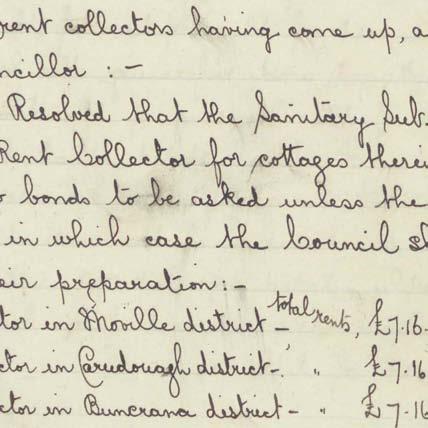 rent collectors having come up, a
ncillor :-
Resolved that the Sanitary Sub.
Rent Collector for cottages therei
o bonds to be asked unless the
in which case the Council sh
eir preparation:-
tor in Moville district - total rents, £7.16.
ctor in Carndonagh district-. " £7.16
ctor in Buncrana district - " £7.16